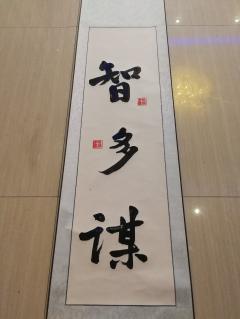 智
多
谋